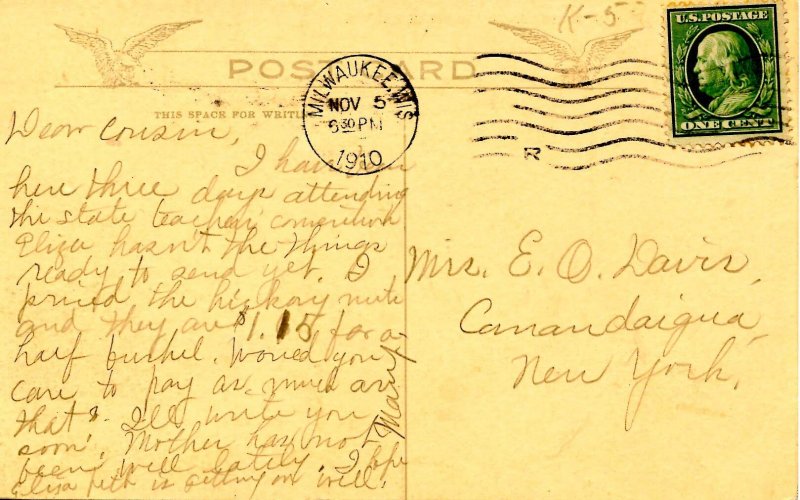 K-5
U.S. POSTAGE
POST CARD
MILWAUKEE, WIS
NOV 5
630 PM
1910
R
ONE CENT
THIS SPACE FOR WRITI
Dear Cousin,
I have been
here three days attending
the state teachers convention
Eliza hasn't the things
ready to send yet. I
priced the hickory nuts
and they are $1.15 for a
half bushel. Would you
care to pay as much as
that? I'll write you
soon. Mother has not
been well lately. I hope
Elizabeth is getting on well.
Mary
Mrs. E. O. Davis,
Canandaigua,
New York.